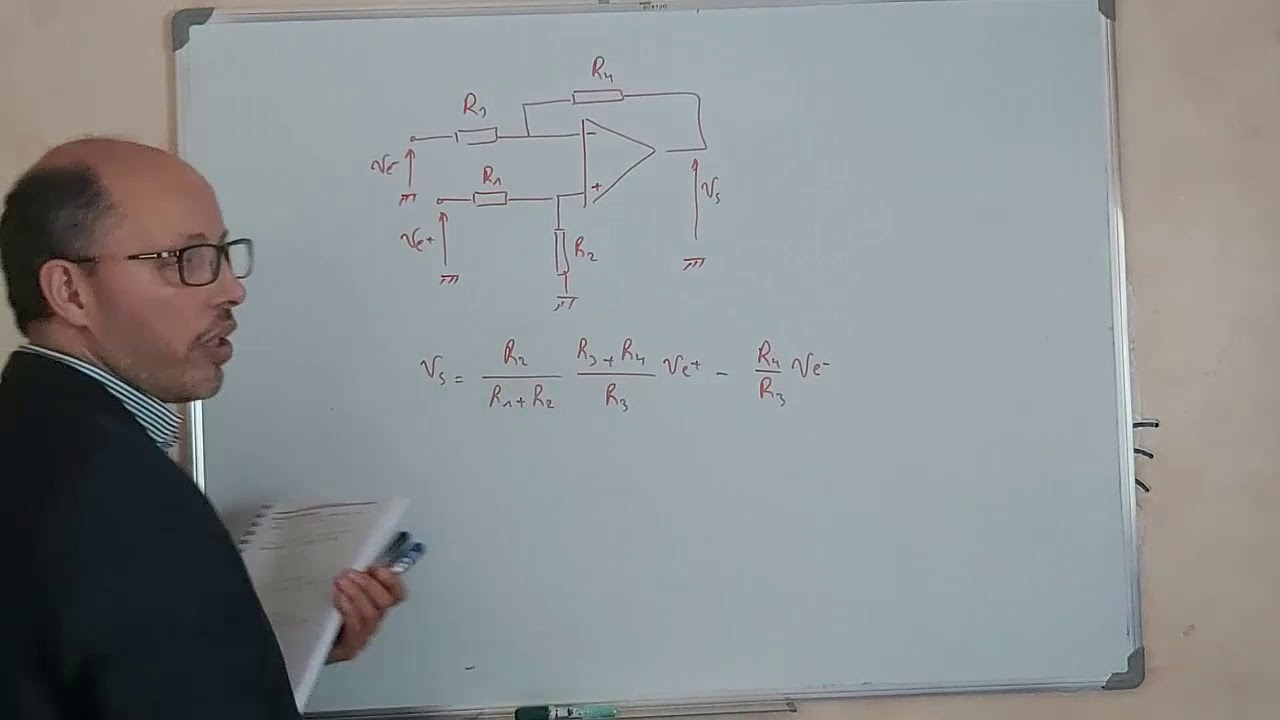 R₄
R₃
Ve-
R₁
Vs
Ve+
R₂
Vs = R₂/(R₁+R₂) (R₃+R₄)/R₃ Ve+ - R₄/R₃ Ve-